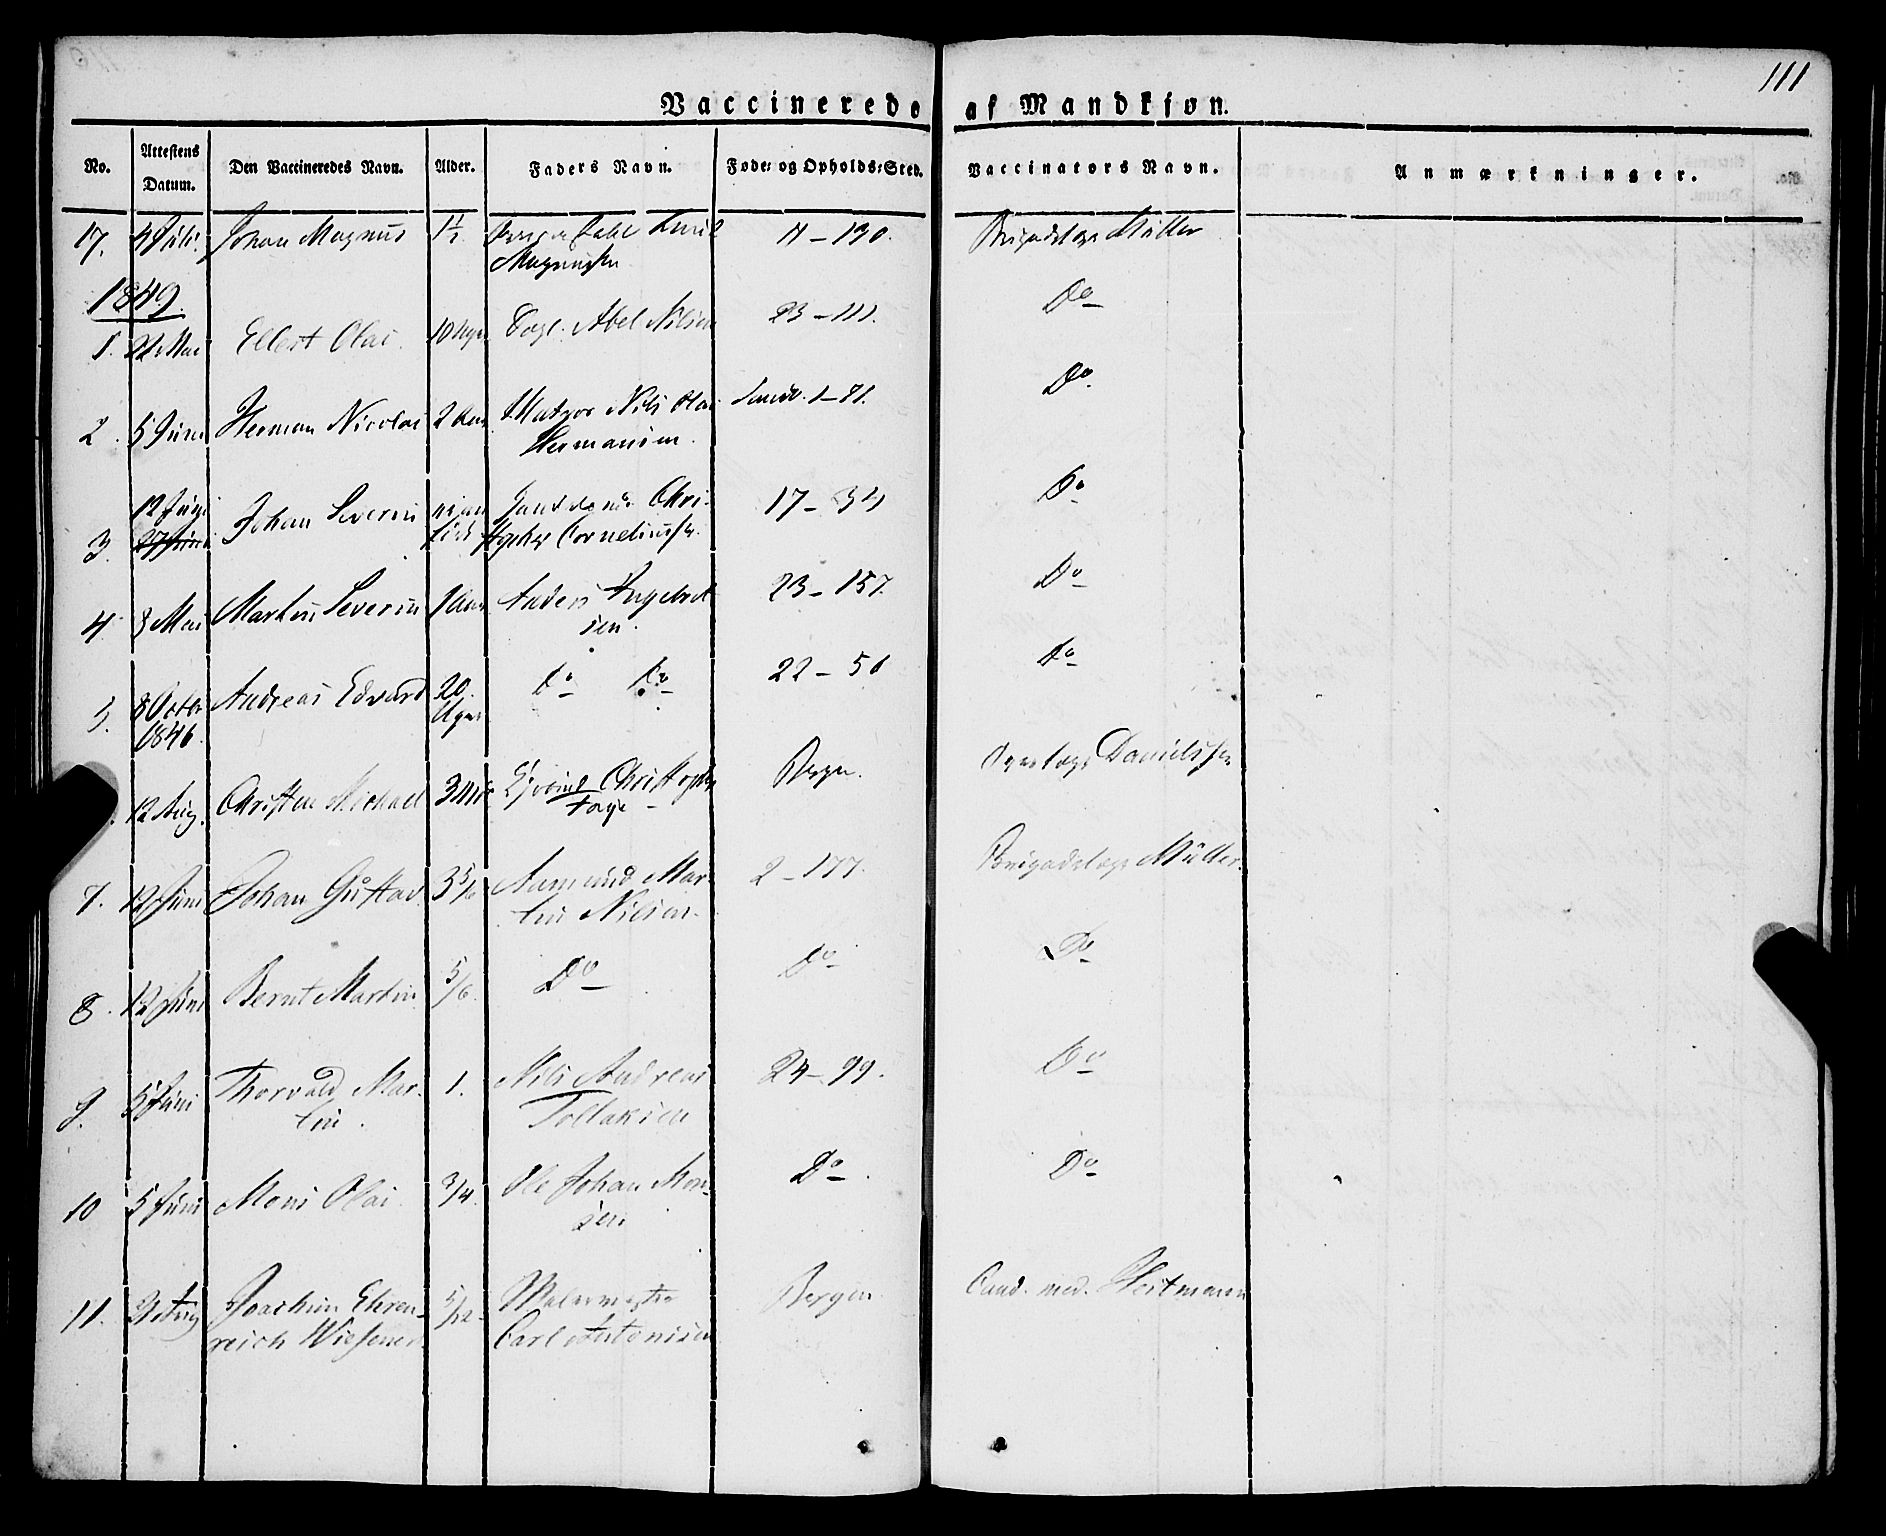 111
Vaccinerede af Mandkjøn.
No. Attestens Datum. Den Vaccineredes Navn. Alder. Faders Navn. Føde- og Opholds-Sted. Vaccinators Navn. Anmærkninger.
17. 4 Juli Johan Magnus 1½ 11-190. Brigadelæge Müller
1849.
1. Mai Ellert Olai. 10 Uger Abel Nilsen 23-111. Do
2. 5 Juni Herman Nicolai 2 Aar Matros Nils Olai 1-71. Do
Hermansen.
12 Juni
3. 27 Juni Johan Severin Chri- 17-34 Do
Corneliussen.
4. 8 Mai Martin Severin 1 Aar Anders Ingebret- 23-157. Do
sen.
5. 8 Octbr Andreas Edvard 20 Do Do 22-50 Do
1846. Uger
12 Aug. Christen Michael 3 Christopher Bergen. Danielssen
7. 12 Juni Johan Gustav 3 5/6 Aamund Mar- 2-177. Brigadelæge Müller.
tin Nilsen.
8. 12 Juni Bernt Martin 5/6. Do Do Do
9. 5 Juni Thorvald Mar- 1. Nils Andreas 24-99. Do
tin. Tollaksen
10 5 Juni Mons Olai 3/4. Ole Johan Mon- Do. Do
sen
11. Aug Joachim Ehren- 5/12. Malermester Bergen Cand. med. Heitmann
reich Wiesener. Carl Antonisen